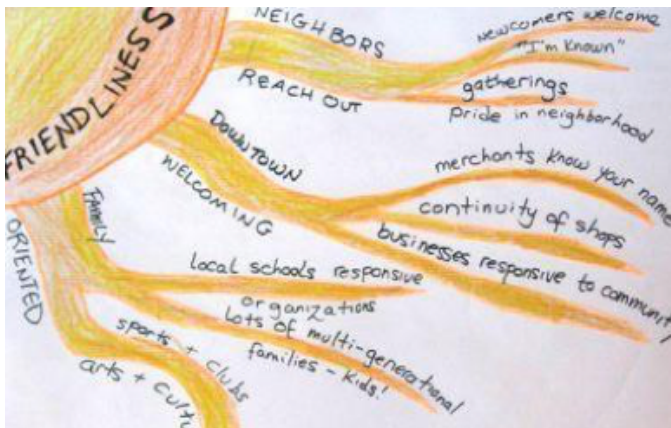 FRIENDLINESS
NEIGHBORS
REACH OUT
newcomers welcome
"I'm Known"
gatherings
pride in neighborhood
DOWNTOWN
WELCOMING
merchants know your name
continuity of shops
businesses responsive to community
FAMILY
ORIENTED
local schools responsive
organizations
Lots of multi-generational
families - kids!
sports + clubs
arts +